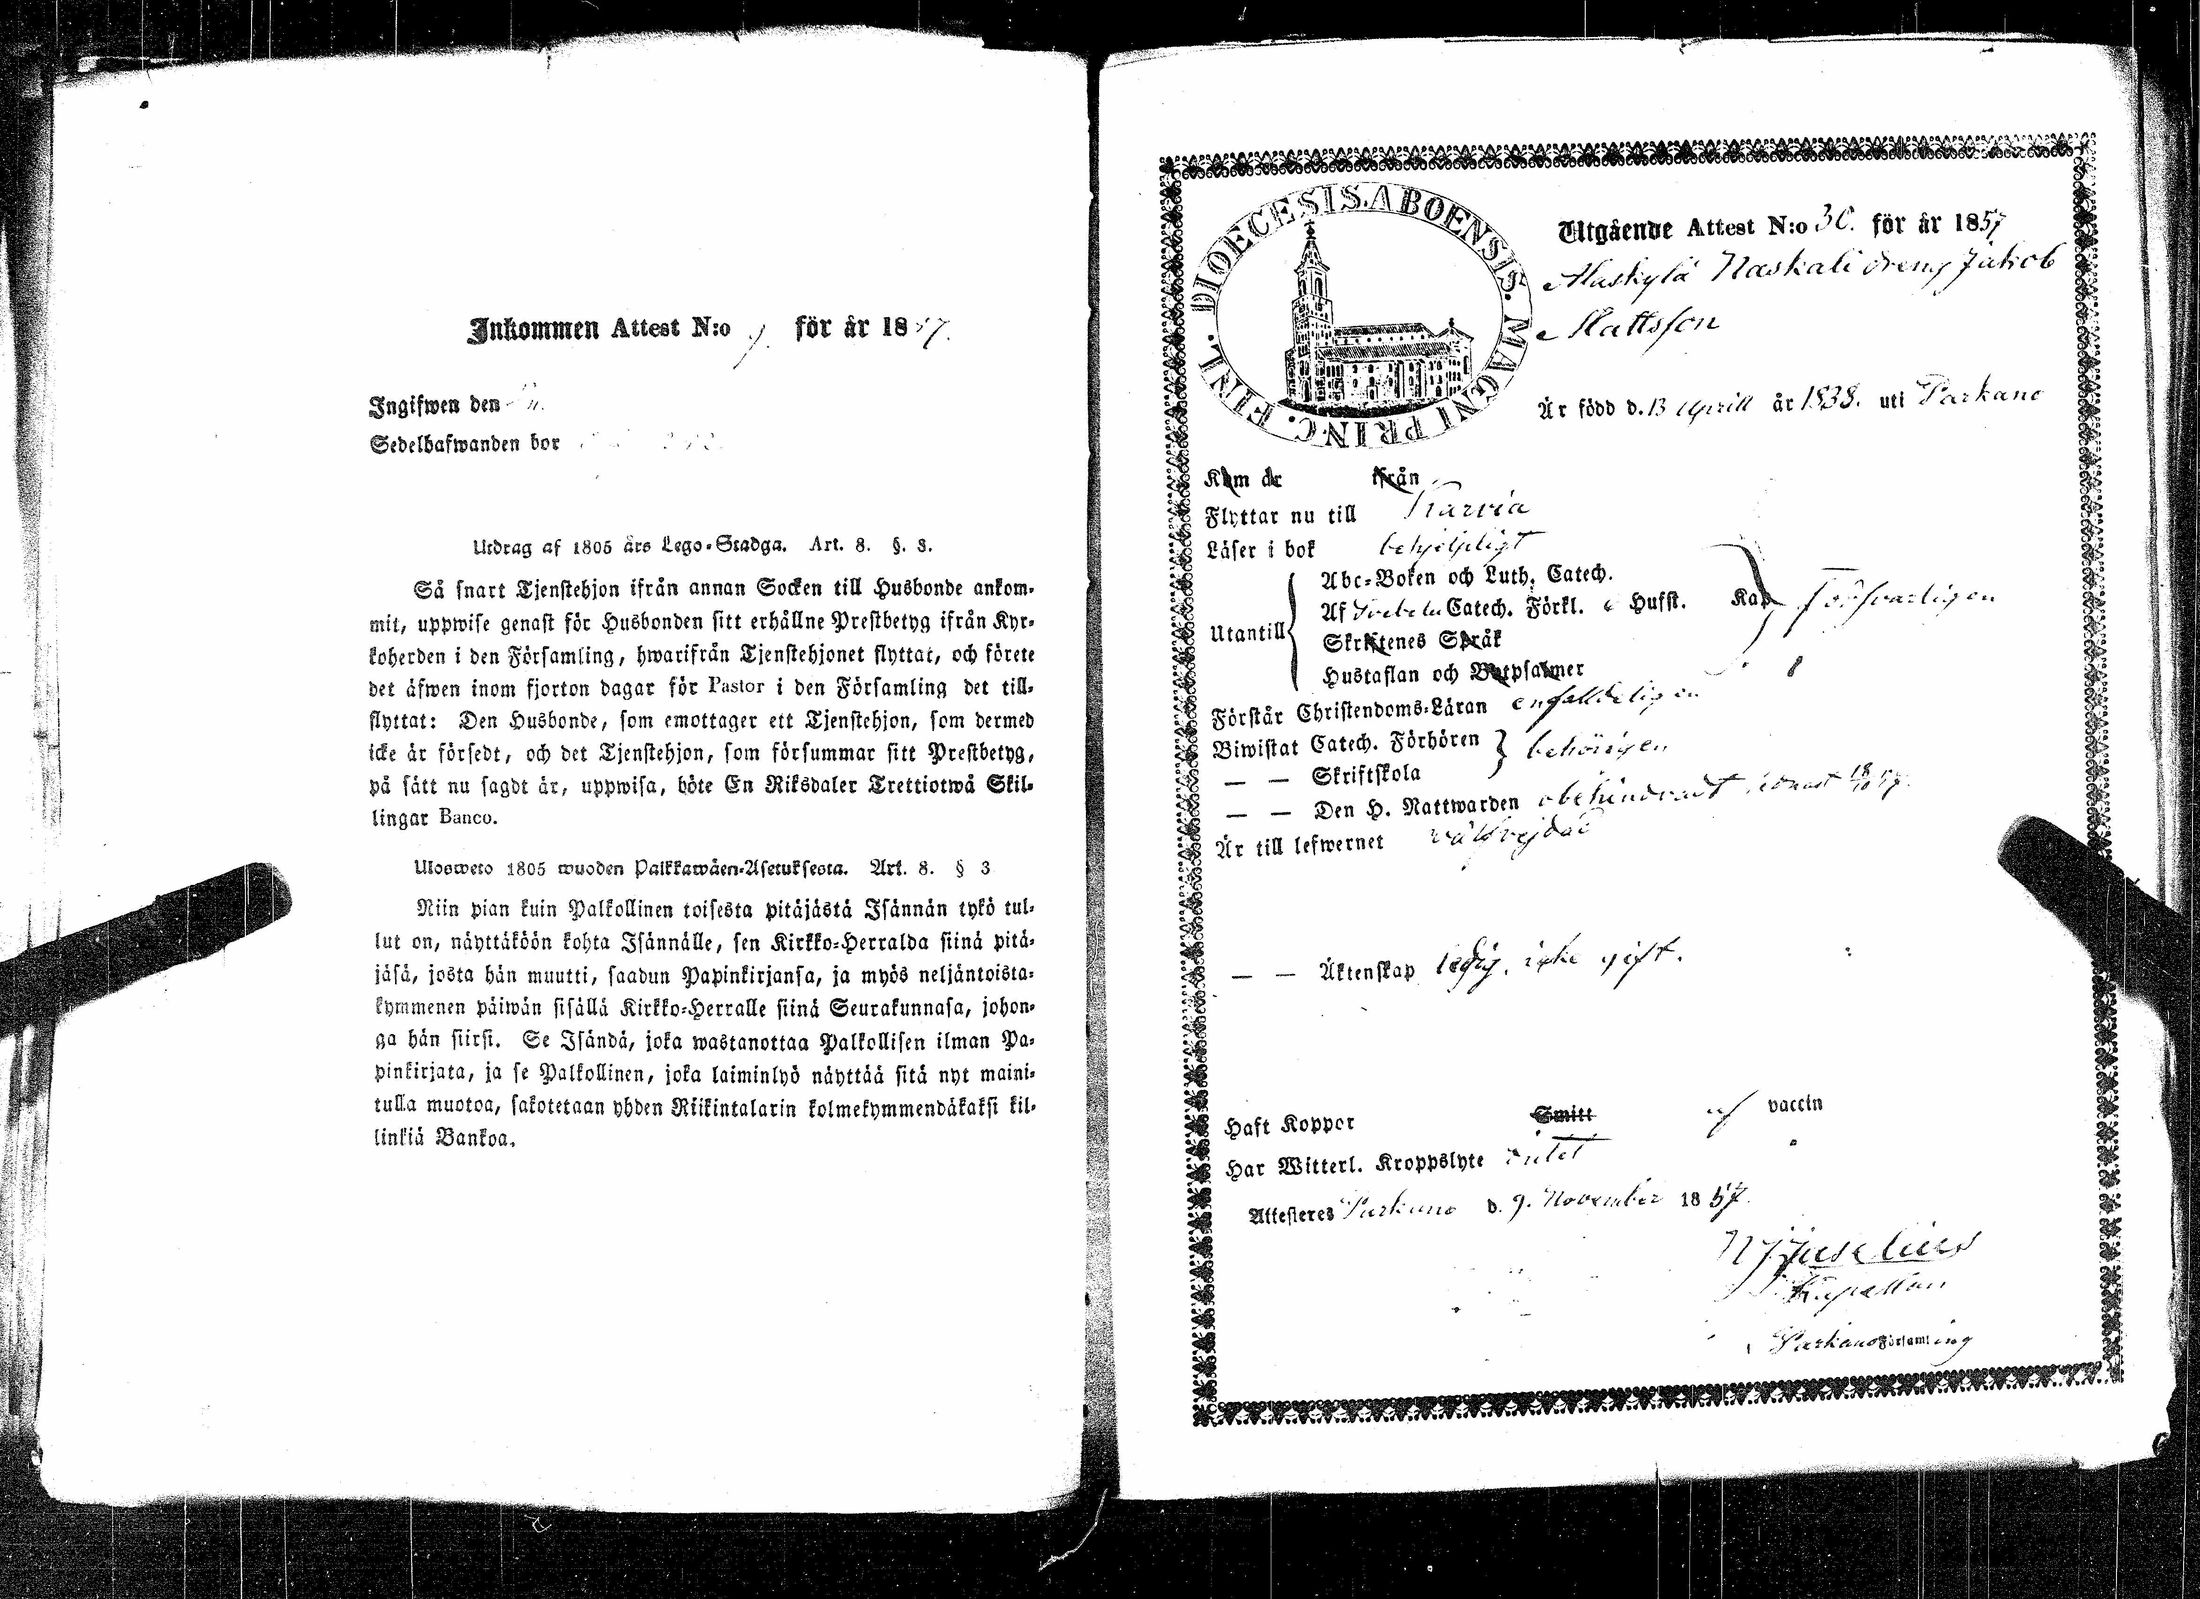 Inkommen Attest N:o 9. för år 1857.
Ingifwen den
Sedelhafwanden bor
Utdrag af 1805 års Lego-Stadga. Art. 8. §. 3.
Så snart Tjenstehjon ifrån annan Socken till Husbonde ankom-
mit, uppwise genast för Husbonden sitt erhållne Prestbetyg ifrån Kyr-
koherden i den Församling, hwarifrån Tjenstehjonet flyttat, och förete
det äfwen inom fjorton dagar för Pastor i den Församling det till-
flyttat: Den Husbonde, som emottager ett Tjenstehjon, som dermed
icke är försedt, och det Tjenstehjon, som försummar sitt Prestbetyg,
på sätt nu sagdt är, uppwisa, böte En Riksdaler Trettiotwå Skil-
lingar Banco.
Ulosweto 1805 wuoden Palkkawäen-Asetuksesta. Art. 8. § 3
Niin pian kuin Palkollinen toisesta pitäjästä Isännän tykö tul-
lut on, näyttäköön kohta Isännälle, sen Kirkko-Herralda siinä pitä-
jäsä, josta hän muutti, saadun Papinkirjansa, ja myös neljäntoista-
kymmenen päiwän sisällä Kirkko-Herralle siinä Seurakunnasa, johon-
ga hän siirsi. Se Isändä, joka wastanottaa Palkollisen ilman Pa-
pinkirjata, ja se Palkollinen, joka laiminlyö näyttää sitä nyt maini-
tulla muotoa, sakotetaan yhden Riikintalarin kolmekymmendäkaksi kil-
linkiä Bankoa.
DIOECESIS. ABOENSIS. MAGNI PRINC. FINL.
Utgående Attest N:o 30. för år 1857
Alaskylä Naskali dreng Jakob
Mattsson
Är född d. 13 Aprill år 1838. uti Parkano
Kom år ifrån
Flyttar nu till Karvia
Läser i bok behjelpligt
Abc-Boken och Luth. Catech.
Utantill Af Svebelii Catech. Förkl. o Hufst. Kap Försvarligen
Skriftenes Språk
Hustaflan och Botpsalmer
Förstår Christendoms-Läran enfalldeligen
Biwistat Catech. Förhören behörigen
— — Skriftskola
— — Den H. Nattwarden obehindradt, sednast 18/10 57.
Är till lefwernet välfrejdad
— — Äktenskap ledig, icke gift.
Haft Koppor Smitt af vaccin
Har Witterl. Kroppslyte intet
Attesteres Parkano d. 9. November 1857.
Juselius
Kapellan
Parkano Församling